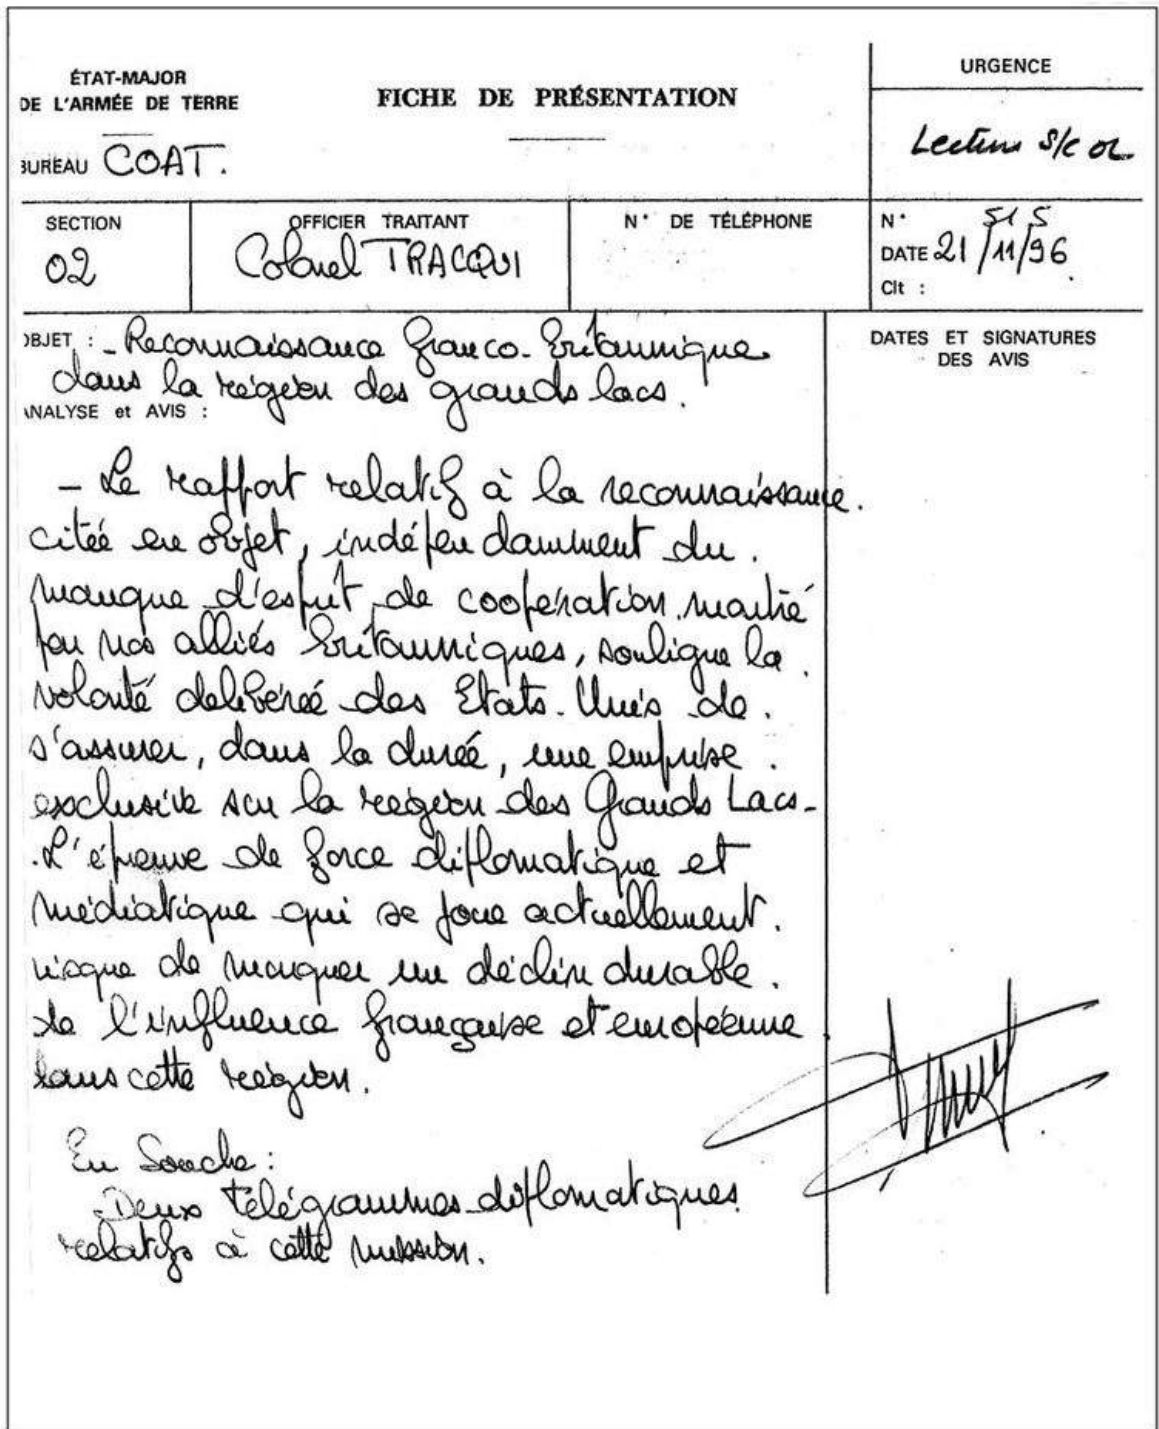 ÉTAT-MAJOR
DE L'ARMÉE DE TERRE
BUREAU COAT.
FICHE DE PRÉSENTATION
URGENCE
Lecture S/C
SECTION
02
OFFICIER TRAITANT
Colonel TRACQUI
N° DE TÉLÉPHONE
N° 515
DATE 21/11/96
Clt :
OBJET : - Reconnaissance franco-britannique
dans la région des grands lacs.
ANALYSE et AVIS :
DATES ET SIGNATURES
DES AVIS
- Le rapport relatif à la reconnaissance.
citée en objet, indépendamment du.
manque d'esprit de coopération
par nos alliés britanniques, souligne la.
volonté délibérée des Etats-Unis de.
s'assurer, dans la durée, une emprise.
exclusive sur la région des Grands Lacs-
.L'épreuve de force diplomatique et
médiatique qui se joue actuellement.
risque de marquer un déclin durable.
de l'influence française et européenne
dans cette région.
En Souche :
Deux télégrammes diplomatiques
relatifs à cette mission.